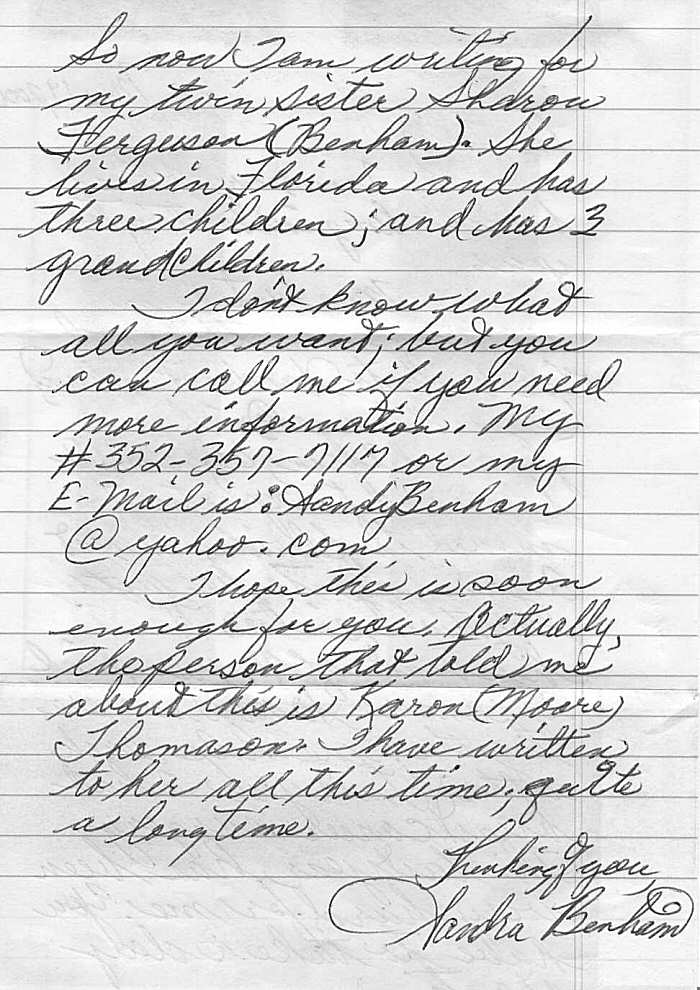 So now I am writing for
my twin sister Sharon
Ferguson (Benham). She
lives in Florida and has
three children; and has 3
grandchildren.
I don't know what
all you want; but you
can call me if you need
more information. My
# 352-357-7117 or my
E-Mail is: SandyBenham
@yahoo.com
I hope this is soon
enough for you. Actually,
the person that told me
about this is Karon (Moore)
Thomason. I have written
to her all this time; quite
a long time.
Thinking of you,
Sandra Benham